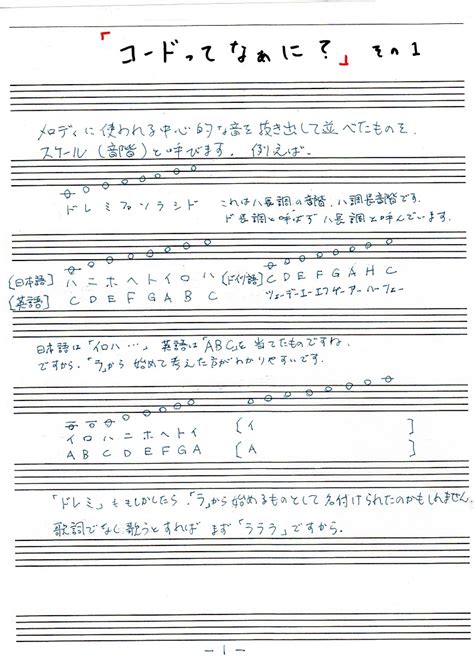 「コードってなぁに？」その1
メロディに使われる中心的な音を抜き出して並べたものを、
スケール（音階）と呼びます。例えば、
ドレミファソラシド これはハ長調の音階、ハ調長音階です。
ド長調と呼ばず ハ長調と呼んでいます。
[日本語] ハ ニ ホ ヘ ト イ ロ ハ [ドイツ語] C D E F G A H C
[英語] C D E F G A B C ツェーデーエーエフゲーアーハーツェー
日本語は「イロハ…」英語は「ABC」を当てたものですね。
ですから、「ラ」から始めて考えた方がわかりやすいです。
イ ロ ハ ニ ホ ヘ ト イ [イ ]
A B C D E F G A [A ]
「ドレミ」ももしかしたら、「ラ」から始めるものとして名付けられたのかもしれません。
歌詞でなし歌うとすれば まず「ラララ」ですから。
－1－